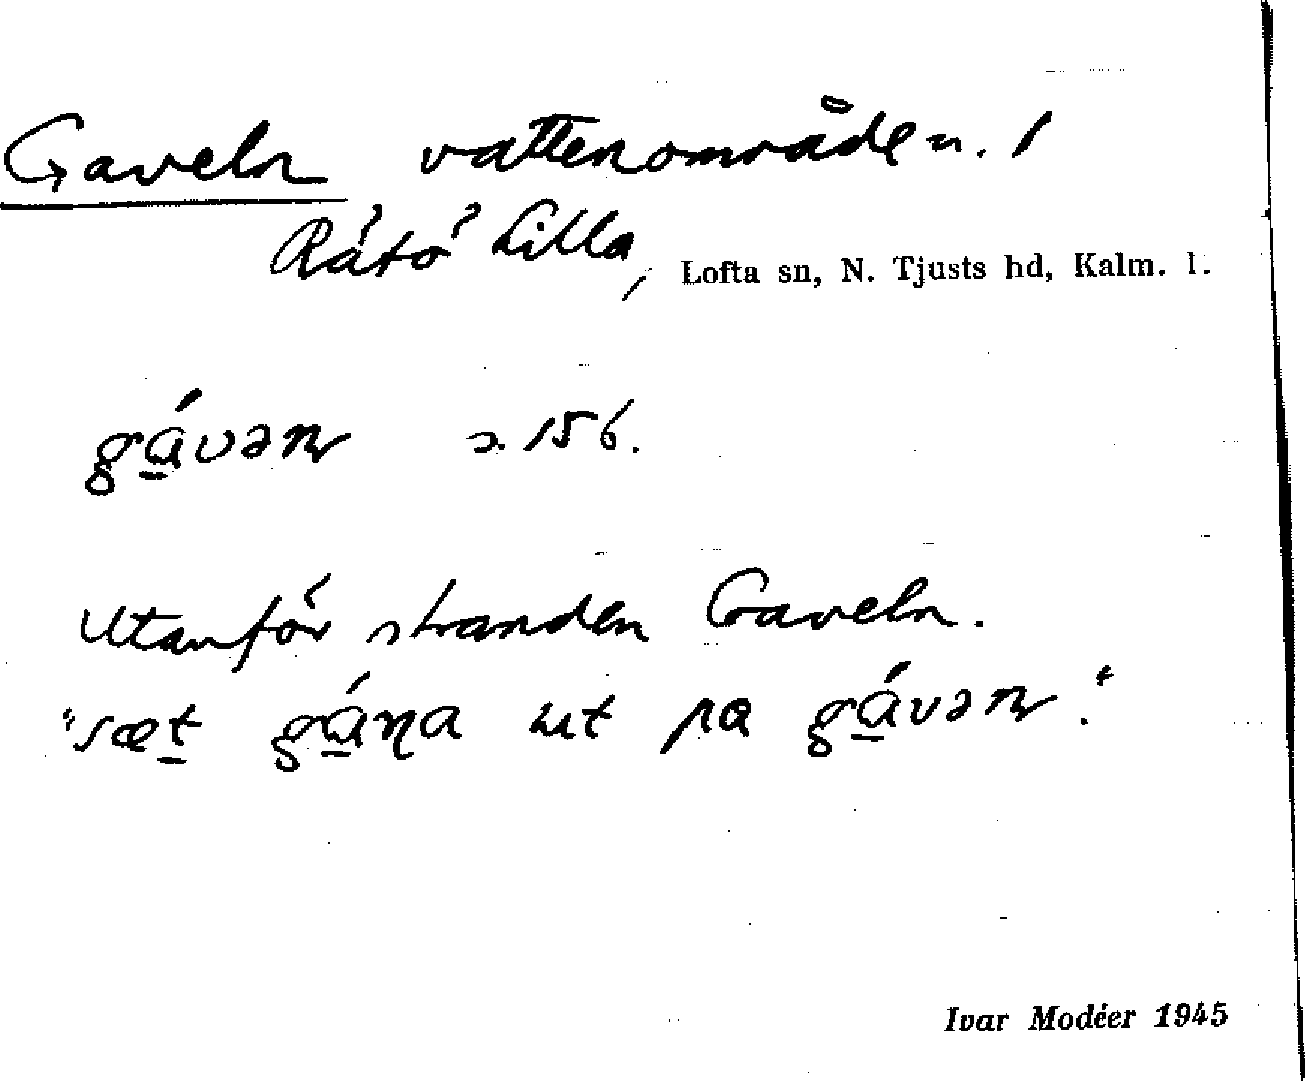 Gaveln vattenområde n. 1
Råtö Lilla, Lofta sn, N. Tjusts hd, Kalm. l.
gávən s. 156.
Utanför stranden Gaveln.
"sæt gáɳa ut pa gávən."
Ivar Modéer 1945